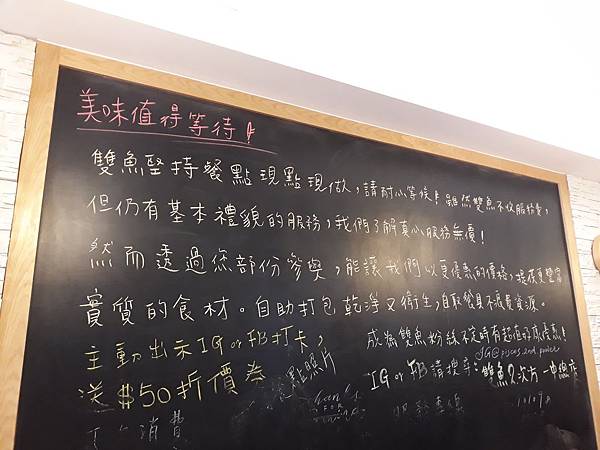 美味值得等待!
雙魚堅持餐點現點現做,請耐心等候!雖然雙魚不收服務費,
但仍有基本禮貌的服務,我們了解真心服務無價!
然而透過您部份參與,能讓我們以更優惠的價格,提供更豐富
實質的食材。自助打包乾淨又衛生,自取餐具不浪費資源。
主動出示IG or FB打卡,
送$50折價券
點照片
消費
成為雙魚粉絲不定時有超值好康優惠!
IG@pisces.2nd.power
IG or FB 請搜尋:雙魚2次方-中